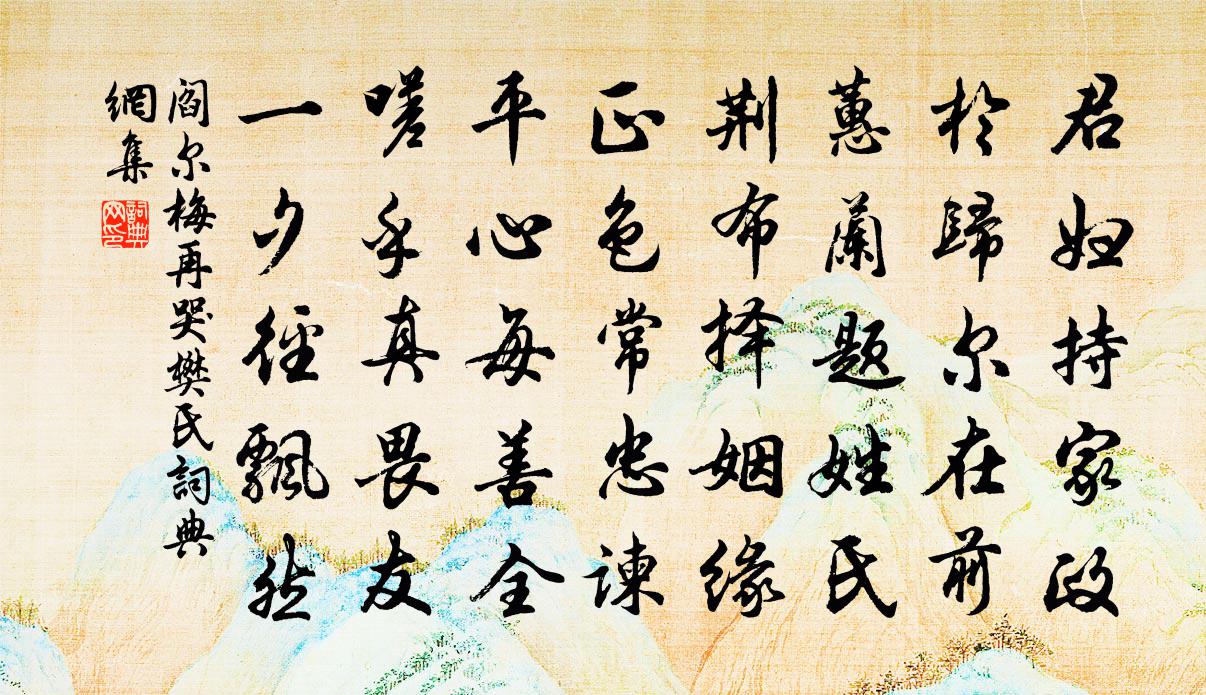 君妇持家政
於歸尔在前
蕙蘭题姓氏
荆布择姻缘
正色常忠谏
平心每善全
嗟乎真畏友
一夕径飘然
阎尔梅再哭樊氏詞典
網集
詞典網印